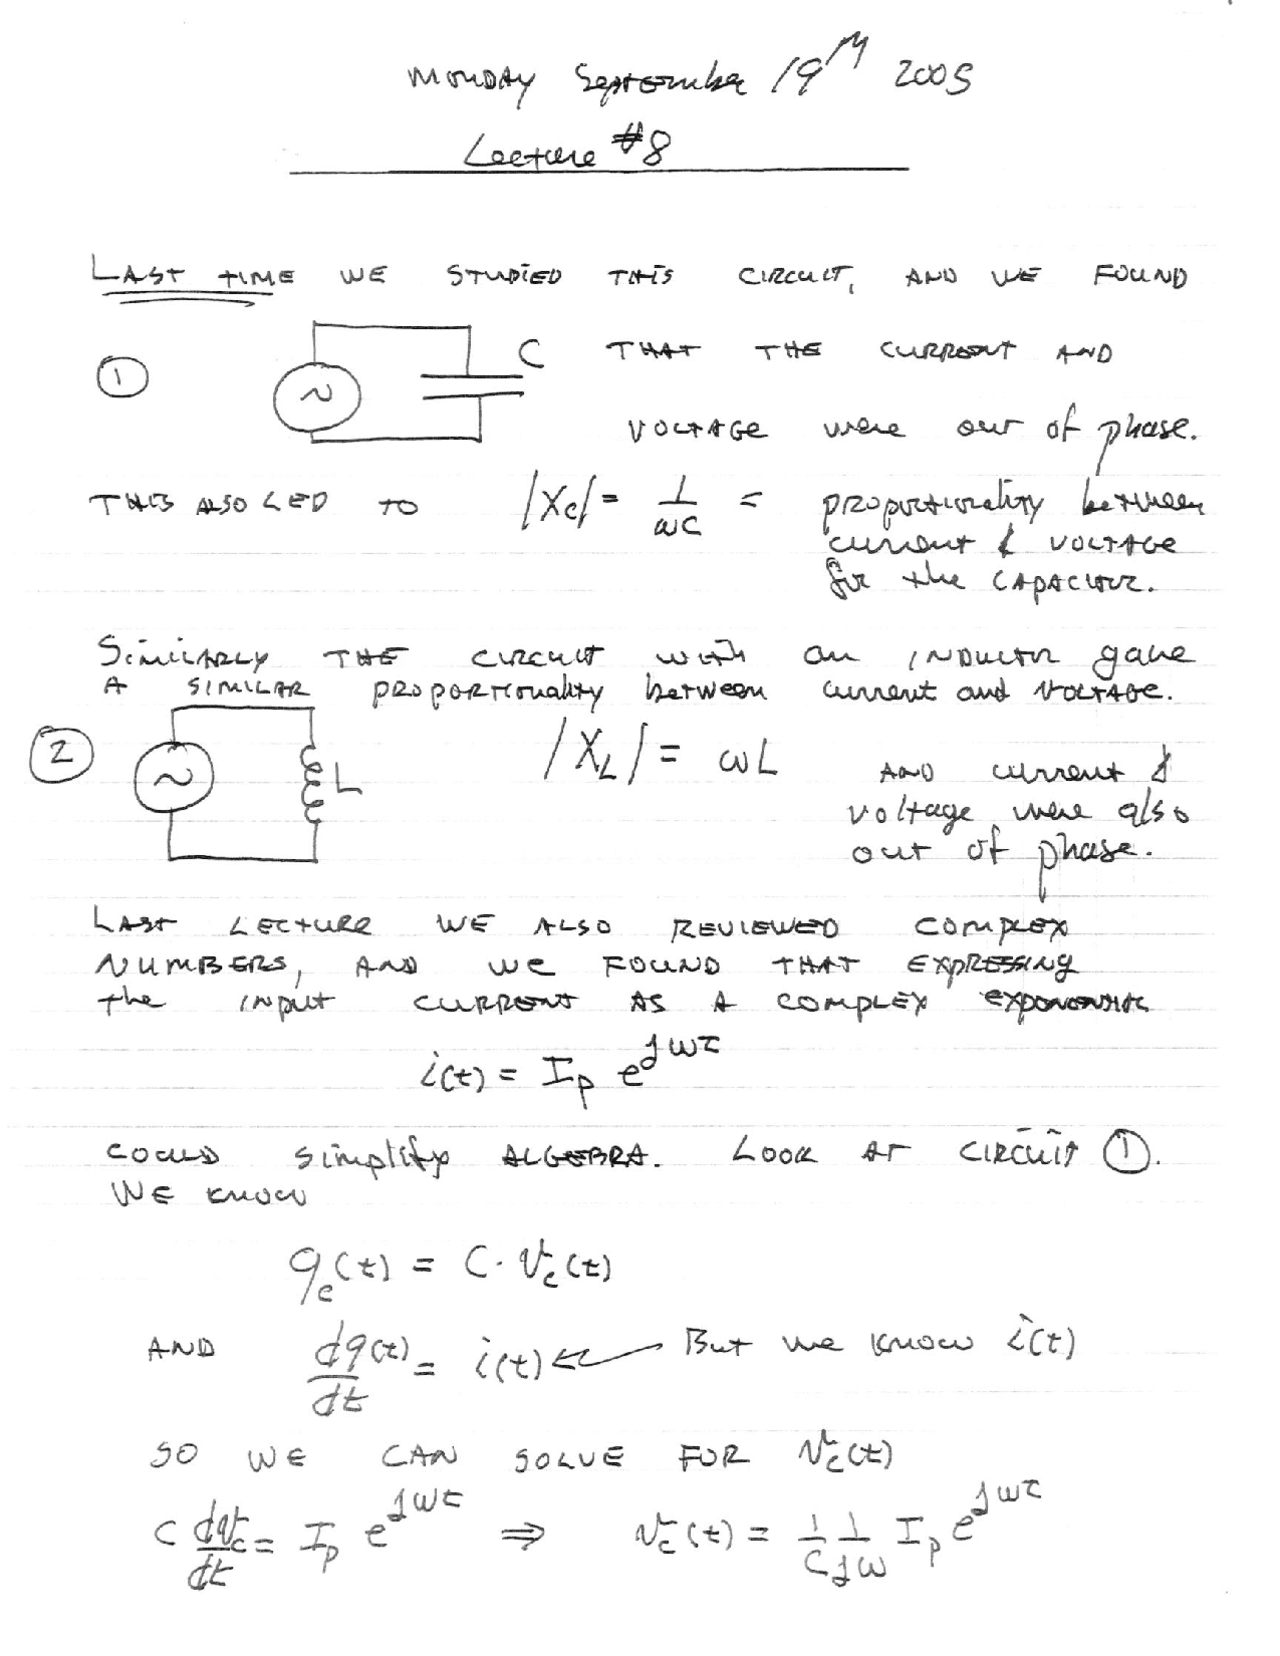 Monday September 19th 2005
Lecture #8
LAST TIME WE STUDIED THIS CIRCUIT, AND WE FOUND
① C THAT THE CURRENT AND
VOLTAGE were out of phase.
THIS ALSO LED TO |Xc| = 1/ωC = proportionality between
current & VOLTAGE
for the CAPACITOR.
SIMILARLY THE CIRCUIT with an INDUCTOR gave
A SIMILAR PROPORTIONALITY between current and VOLTAGE.
② L |X_L| = ωL AND current &
voltage were also
out of phase.
LAST LECTURE WE ALSO REVIEWED COMPLEX
NUMBERS, AND WE FOUND THAT EXPRESSING
the INPUT CURRENT AS A COMPLEX EXPONENTIAL
i(t) = I_p e^{jωt}
COULD simplify ALGEBRA. LOOK AT CIRCUIT ①.
WE KNOW
q_c(t) = C · v_c(t)
AND dq(t)/dt = i(t) ← But we know i(t)
SO WE CAN SOLVE FOR v_c(t)
C dv_c/dt = I_p e^{jωt} ⇒ v_c(t) = 1/C 1/jω I_p e^{jωt}